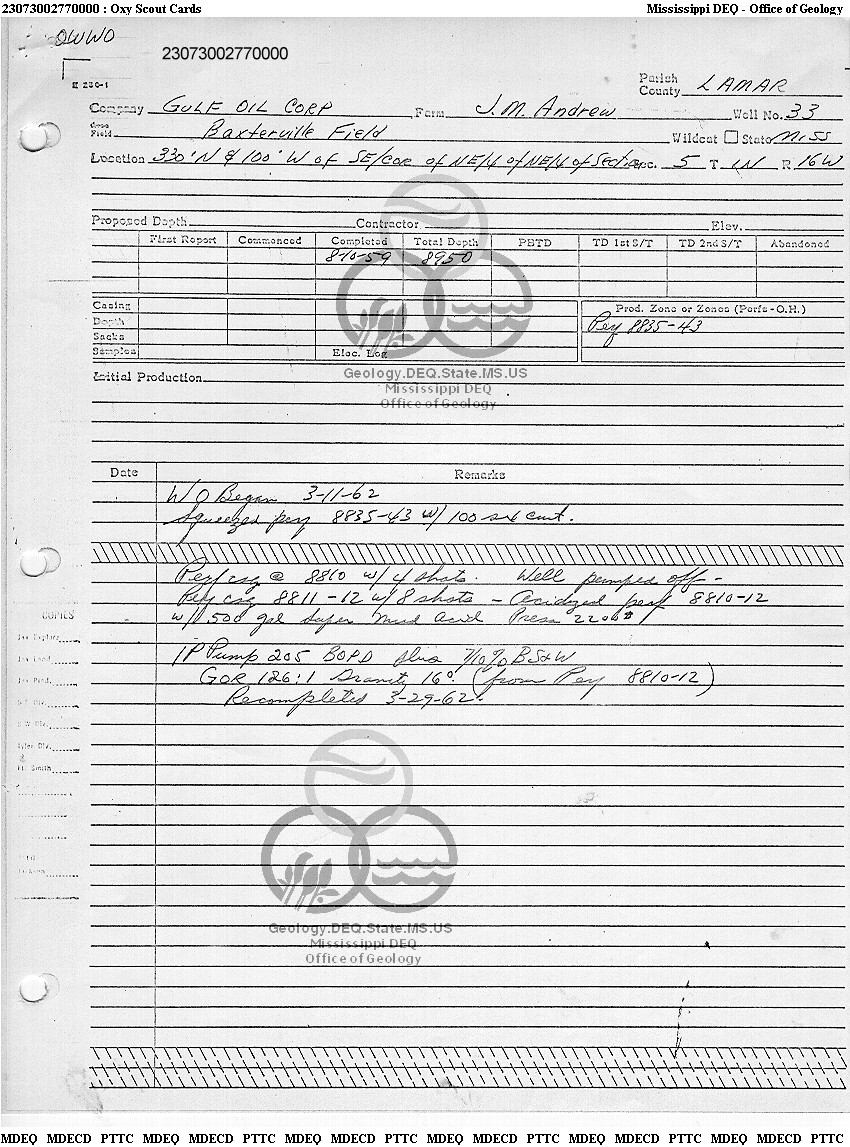 23073002770000 : Oxy Scout Cards Mississippi DEQ - Office of Geology
OWWO
23073002770000
Parish
County LAMAR
Company GULF OIL CORP Farm J.M. Andrew Well No. 33
Field Baxterville Field Wildcat State Miss
Location 330' N & 100' W of SE/cor of NE/4 of NE/4 of Section Sec. 5 T 1N R 16W
Proposed Depth Contractor Elev.
First Report Commenced Completed Total Depth PBTD TD 1st S/T TD 2nd S/T Abandoned
8-10-59 8950
Casing Prod. Zone or Zones (Perfs - O.H.)
Depth Perf 8835-43
Sacks
Samples Elec. Log
Initial Production
Geology.DEQ.State.MS.US
Mississippi DEQ
Office of Geology
Date Remarks
WO Began 3-11-62
Squeezed perf 8835-43 w/ 100 sx cmt.
Perf csg @ 8810 w/ 4 shots. Well pumped off -
Perf csg 8811-12 w/ 8 shots - Acidized perf 8810-12
w/ 500 gal super mud acid Press 2200#
COPIES
IP Pump 205 BOPD plus 7/10% BS&W
GOR 126:1 Gravity 16°. (from Perf 8810-12)
Recompleted 3-29-62.
Tyler Div.
Ft. Smith
Geology.DEQ.State.MS.US
Mississippi DEQ
Office of Geology
MDEQ MDECD PTTC MDEQ MDECD PTTC MDEQ MDECD PTTC MDEQ MDECD PTTC MDEQ MDECD PTTC MDEQ MDECD PTTC